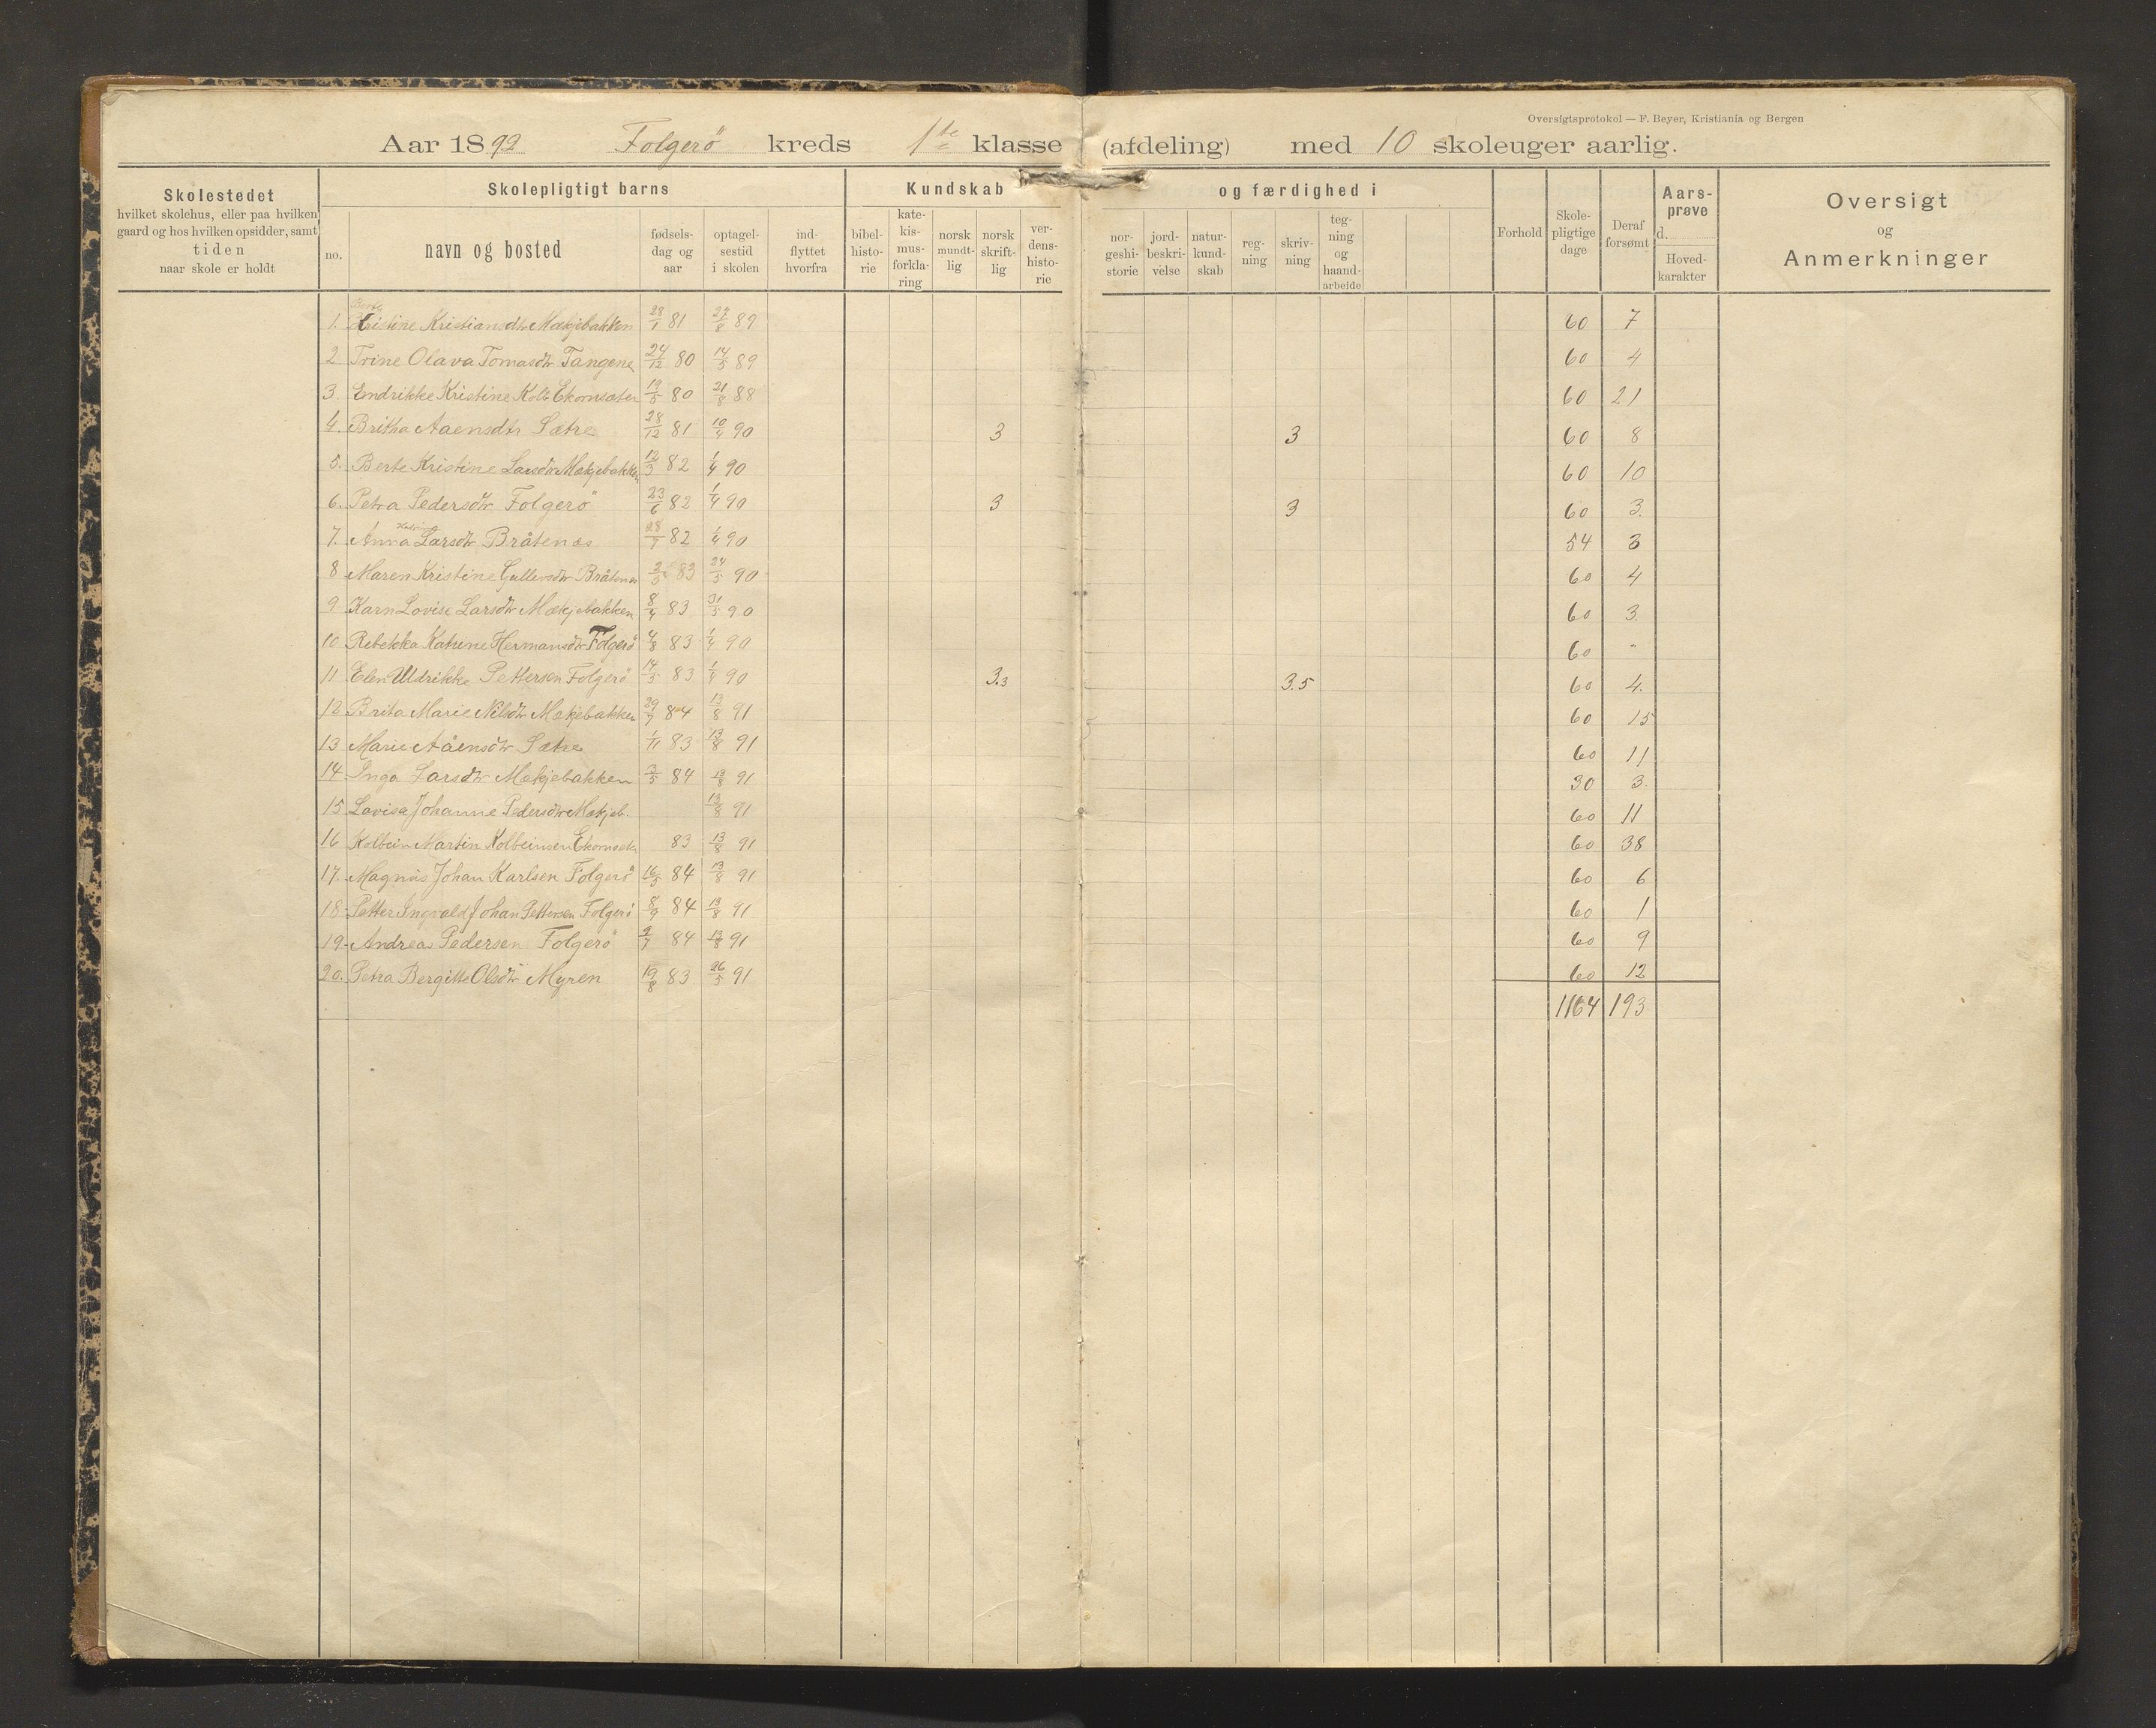 Oversigtsprotokol — F. Beyer, Kristiania og Bergen
Aar 1892 Folgerö kreds 1te klasse (afdeling) med 10 skoleuger aarlig.
Skolestedet
hvilket skolehus, eller paa hvilken
gaard og hos hvilken opsidder, samt
tiden
naar skole er holdt
Skolepligtigt barns
no.
navn og bosted
fødsels-
dag og
aar
optagel-
sestid
i skolen
ind-
flyttet
hvorfra
Kundskab og færdighed i
bibel-
histo-
rie
kate-
kis-
mus-
forkla-
ring
norsk
mundt-
lig
norsk
skrift-
lig
ver-
dens-
histo-
rie
nor-
geshi-
storie
jord-
beskri-
velse
natur-
kund-
skab
reg-
ning
skriv-
ning
teg-
ning
og
haand-
arbeide
Forhold
Skole-
pligtige
dage
Deraf
forsømt
Aars-
prøve
d.
Hoved-
karakter
Oversigt
og
Anmerkninger
Berte
1. Kristine Kristiansdtr Mækjebakken 28/1 81 22/8 89 60 7
2 Trine Olava Tomasdtr Tangene 24/12 80 14/5 89 60 4
3. Endrikke Kristine Kolb Ekornsæter 19/5 80 21/8 88 60 21
4. Britha Aaensdtr Sætre 28/12 81 10/4 90 3 3 60 8
5. Berte Kristine Larsdtr Mækjebakken 12/3 82 1/4 90 60 10
6. Petra Pedersdtr Folgerö 23/6 82 1/4 90 3 3 60 3.
7. Anna Larsdtr Bråtenæs 28/7 82 1/4 90 54 3
8 Maren Kristine Gullevsdtr Bråtenæs 2/3 83 24/5 90 60 4
9 Karn Lovise Larsdtr Mækjebakken 8/4 83 31/5 90 60 3.
10 Rebekka Katrine Hermansdtr Folgerö 4/8 83 1/4 90 60 "
11 Elen Uldrikke Pettersen Folgerö 14/5 83 1/4 90 3.3 3.5 60 4.
12 Brita Marie Nilsdtr Mækjebakken 29/7 84 13/8 91 60 15
13 Marie Aåensdtr Sætre 1/11 83 13/8 91 60 11
14 Inga Larsdtr Mækjebakken 3/5 84 13/8 91 30 3.
15 Lovisa Johanne Pedersdtr Mækjeb. 13/8 91 60 11
16 Kolbein Martin Kolbeinsen Ekornsæt 83 13/8 91 60 38
17. Magnus Johan Karlsen Folgerö 16/5 84 13/8 91 60 6
18 Petter Ingvald Johan Pettersen Folgerö 8/9 84 13/8 91 60 1
19 Andreas Pedersen Folgerö 2/7 84 13/8 91 60 9
20. Petra Bergitte Olsdtr Myren 19/8 83 26/5 91 60 12
1164 193